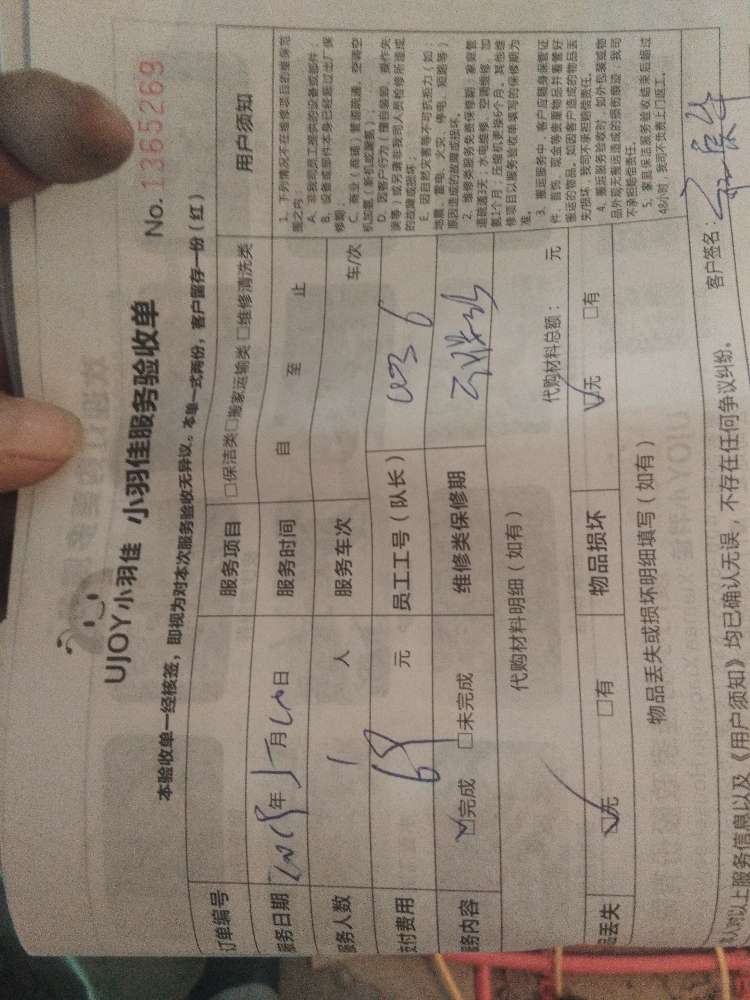 UJOY小羽佳 小羽佳服务验收单
No. 1365269
本验收单一经核签，即视为对本次服务验收无异议。本单一式两份，客户留存一份（红）
订单编号
服务项目 □保洁类□搬家运输类□维修清洗类
服务日期 年 月 日
服务时间 自 至 止
服务人数 1 人
服务车次 车/次
支付费用 69 元
员工工号（队长）
服务内容 ☑完成 □未完成
维修类保修期
代购材料明细（如有） 代购材料总额： 元
品丢失 ☑无 □有
物品损坏 ☑无 □有
物品丢失或损坏明细填写（如有）
用户须知
1、下列情况不在维修项目的维保范
围之内：
A、非我司员工提供的设备或部件；
B、设备或部件本身已经超过出厂保
修期；
C、商业（商铺）管道疏通、空调空
机加氨（新机或漏氨）；
D、因客户行为（擅自装卸、操作失
误等）或另请非我司人员检修所造成
的故障或损坏；
E、因自然灾害等不可抗拒力（如
地震、雷电、火灾、停电、短路等）
原因造成的故障或损坏。
2、维修类服务免费保修期：家庭管
道疏通3天；水电维修、空调维修、加
氨1个月；压缩机更换6个月，其他维
修项目以服务验收单填写的保修期为
准。
3、搬运服务中，客户应随身保管证
件、首饰、现金等贵重物品并看管好
搬运的物品，如因客户造成的物品丢
失/损坏，我司不承担赔偿责任。
4、搬运服务验收时，如外包装或物
品外观无搬运造成的损伤痕迹，我司
不承担赔偿责任。
5、家具保洁服务验收结束后超过
48小时，我司不负责上门返工。
人对以上服务信息以及《用户须知》均已确认无误，不存在任何争议纠纷。
客户签名：